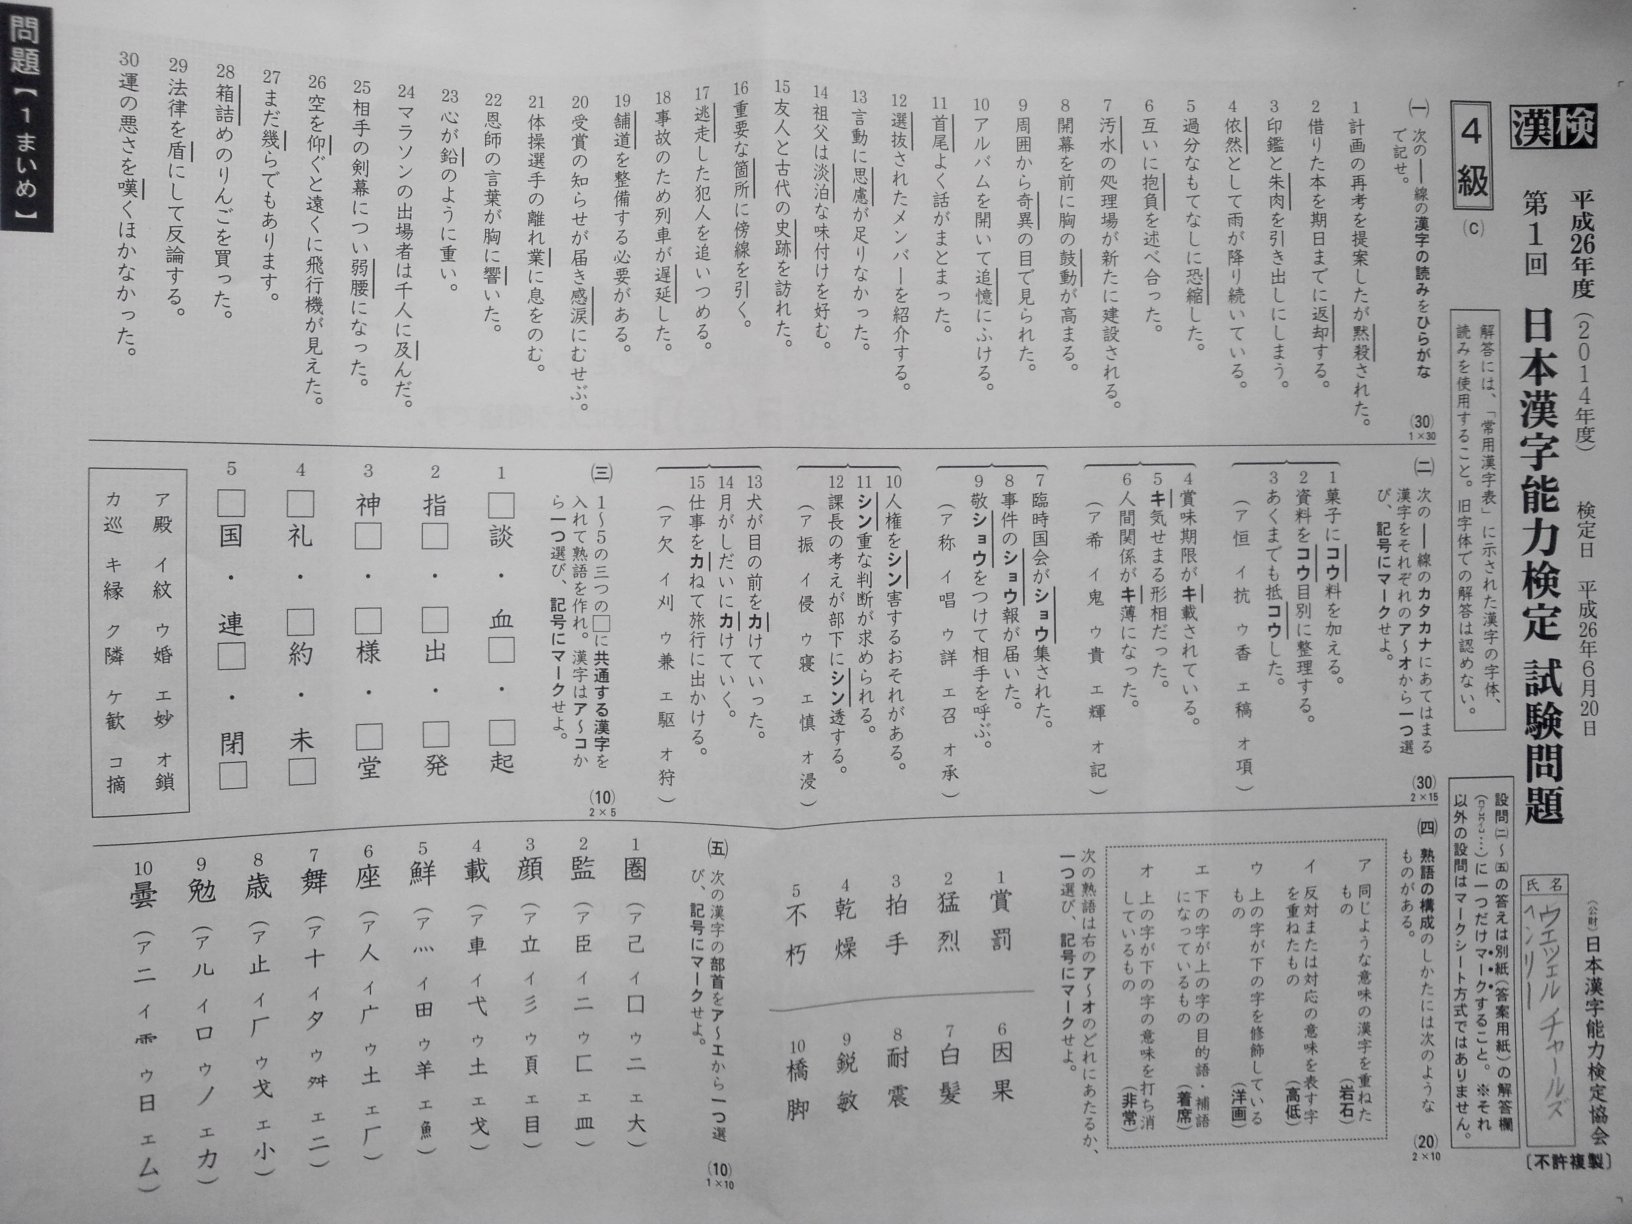 漢検
4級
(C)
平成26年度(2014年度)
第1回 日本漢字能力検定 試験問題
検定日 平成26年6月20日
(公財)日本漢字能力検定協会
〔不許複製〕
氏名
ウエツェル チャールズ
ヘンリー
解答には、「常用漢字表」に示された漢字の字体、
読みを使用すること。旧字体での解答は認めない。
設問㈡~㈤の答えは別紙(答案用紙)の解答欄
に一つだけマークすること。※それ
以外の設問はマークシート方式ではありません。
㈠ 次の――線の漢字の読みをひらがな
で記せ。
(30)
1×30
1 計画の再考を提案したが黙殺された。
2 借りた本を期日までに返却する。
3 印鑑と朱肉を引き出しにしまう。
4 依然として雨が降り続いている。
5 過分なもてなしに恐縮した。
6 互いに抱負を述べ合った。
7 汚水の処理場が新たに建設される。
8 開幕を前に胸の鼓動が高まる。
9 周囲から奇異の目で見られた。
10 アルバムを開いて追憶にふける。
11 首尾よく話がまとまった。
12 選抜されたメンバーを紹介する。
13 言動に思慮が足りなかった。
14 祖父は淡泊な味付けを好む。
15 友人と古代の史跡を訪れた。
16 重要な箇所に傍線を引く。
17 逃走した犯人を追いつめる。
18 事故のため列車が遅延した。
19 舗道を整備する必要がある。
20 受賞の知らせが届き感涙にむせぶ。
21 体操選手の離れ業に息をのむ。
22 恩師の言葉が胸に響いた。
23 心が鉛のように重い。
24 マラソンの出場者は千人に及んだ。
25 相手の剣幕につい弱腰になった。
26 空を仰ぐと遠くに飛行機が見えた。
27 まだ幾らでもあります。
28 箱詰めのりんごを買った。
29 法律を盾にして反論する。
30 運の悪さを嘆くほかなかった。
㈡ 次の――線のカタカナにあてはまる
漢字をそれぞれのア~オから一つ選
び、記号にマークせよ。
(30)
2×15
1 菓子にコウ料を加える。
2 資料をコウ目別に整理する。
3 あくまでも抵コウした。
(ア 恒 イ 抗 ウ 香 エ 稿 オ 項)
4 賞味期限がキ載されている。
5 キ気せまる形相だった。
6 人間関係がキ薄になった。
(ア 希 イ 鬼 ウ 貴 エ 輝 オ 記)
7 臨時国会がショウ集された。
8 事件のショウ報が届いた。
9 敬ショウをつけて相手を呼ぶ。
(ア 称 イ 唱 ウ 詳 エ 召 オ 承)
10 人権をシン害するおそれがある。
11 シン重な判断が求められる。
12 課長の考えが部下にシン透する。
(ア 振 イ 侵 ウ 寝 エ 慎 オ 浸)
13 犬が目の前をカけていった。
14 月がしだいにカけていく。
15 仕事をカねて旅行に出かける。
(ア 欠 イ 刈 ウ 兼 エ 駆 オ 狩)
㈢ 1~5の三つの□に共通する漢字を
入れて熟語を作れ。漢字はア~コか
ら一つ選び、記号にマークせよ。
(10)
2×5
1 □談・血□・□起
2 指□・□出・□発
3 神□・□様・□堂
4 □礼・□約・未□
5 □国・連□・閉□
ア 殿 イ 紋 ウ 婚 エ 妙 オ 鎖
カ 巡 キ 縁 ク 隣 ケ 歓 コ 摘
㈣ 熟語の構成のしかたには次のような
ものがある。
(20)
2×10
ア 同じような意味の漢字を重ねた
もの (岩石)
イ 反対または対応の意味を表す字
を重ねたもの (高低)
ウ 上の字が下の字を修飾している
もの (洋画)
エ 下の字が上の字の目的語・補語
になっているもの (着席)
オ 上の字が下の字の意味を打ち消
しているもの (非常)
次の熟語は右のア~オのどれにあたるか、
一つ選び、記号にマークせよ。
1 賞罰
2 猛烈
3 拍手
4 乾燥
5 不朽
6 因果
7 白髪
8 耐震
9 鋭敏
10 橋脚
㈤ 次の漢字の部首をア~エから一つ選
び、記号にマークせよ。
(10)
1×10
1 圏 (ア 己 イ 囗 ウ 二 エ 大)
2 監 (ア 臣 イ 二 ウ 匚 エ 皿)
3 顔 (ア 立 イ 彡 ウ 頁 エ 目)
4 載 (ア 車 イ 弋 ウ 土 エ 戈)
5 鮮 (ア 灬 イ 田 ウ 羊 エ 魚)
6 座 (ア 人 イ 广 ウ 土 エ 厂)
7 舞 (ア 十 イ 夕 ウ 舛 エ 二)
8 歳 (ア 止 イ 厂 ウ 戈 エ 小)
9 勉 (ア 儿 イ 口 ウ ノ エ 力)
10 曇 (ア 二 イ ⻗ ウ 日 エ ム)
問題【1まいめ】